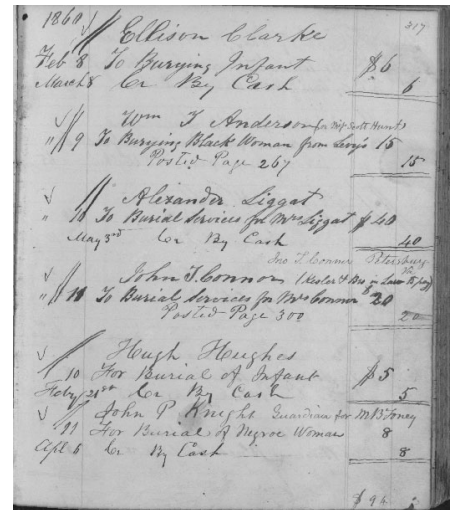 1860 317
Ellison Clarke
Feb 8 To Burying Infant $6
March 8 Cr By Cash 6
Wm T Anderson for
" 9 To Burying Black Woman from Levy's 15
Posted Page 267 15
Alexander Liggat
" 10 To Burial Services for Mrs Liggat $40
May 3rd Cr By Cash 40
Jno T. Connor Petersburg Va
John T. Connor (Kesler & Bro in Law to pay)
" 10 To Burial Services for Mrs Connor $20
Posted Page 300 20
Hugh Hughes
10 For Burial of Infant $5
Feby 21st Cr By Cash 5
John P Knight Guardian for
11 For Burial of Negroe Woman 8
Apl 5 Cr By Cash 8
$94